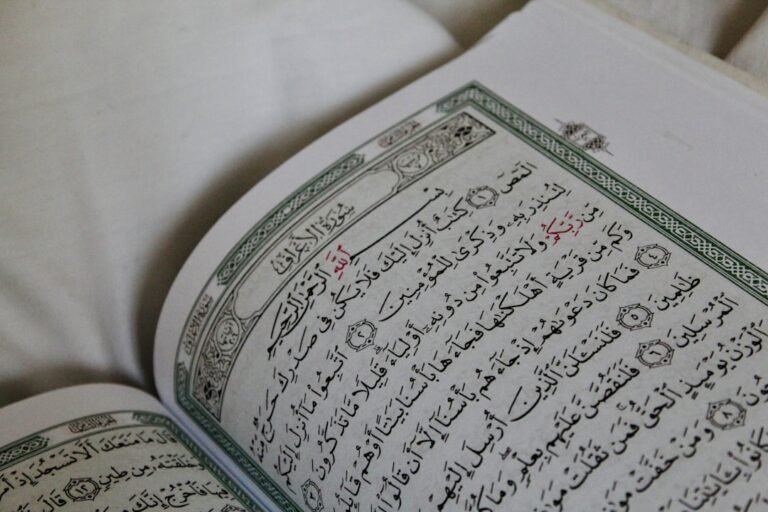 سُورَةُ الْأَعْرَافِ
بِسْمِ ٱللَّهِ ٱلرَّحْمَٰنِ ٱلرَّحِيمِ
الٓمٓصٓ ١ كِتَٰبٌ أُنزِلَ إِلَيْكَ فَلَا يَكُن فِى صَدْرِكَ حَرَجٌ مِّنْهُ
لِتُنذِرَ بِهِۦ وَذِكْرَىٰ لِلْمُؤْمِنِينَ ٢ ٱتَّبِعُوا۟ مَآ أُنزِلَ إِلَيْكُم
مِّن رَّبِّكُمْ وَلَا تَتَّبِعُوا۟ مِن دُونِهِۦٓ أَوْلِيَآءَ قَلِيلًا مَّا تَذَكَّرُونَ
وَكَم مِّن قَرْيَةٍ أَهْلَكْنَٰهَا فَجَآءَهَا بَأْسُنَا بَيَٰتًا أَوْ هُمْ
٤ فَمَا كَانَ دَعْوَىٰهُمْ إِذْ جَآءَهُم بَأْسُنَآ إِلَّآ أَن قَالُوٓا۟
ظَٰلِمِينَ ٥ فَلَنَسْـَٔلَنَّ ٱلَّذِينَ أُرْسِلَ إِلَيْهِمْ
ٱلْمُرْسَلِينَ ٦ فَلَنَقُصَّنَّ عَلَيْهِم بِعِلْمٍ وَمَا
وَٱلْوَزْنُ يَوْمَئِذٍ ٱلْحَقُّ فَمَن ثَقُلَتْ
٨ وَمَنْ خَفَّتْ
كَانُوا۟ بِـَٔايَٰتِنَا
قَالَ مَا مَنَعَكَ أَلَّا تَسْجُدَ إِذْ
مِن طِينٍ ١٢ قَالَ
فَٱخْرُجْ إِنَّكَ